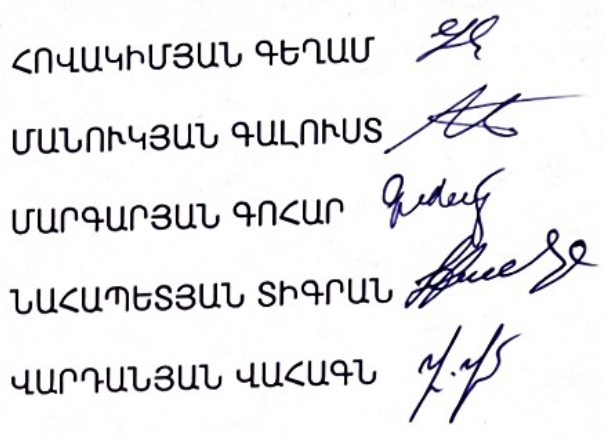 ՀՈՎԱԿԻՄՅԱՆ ԳԵՂԱՄ
ՄԱՆՈՒԿՅԱՆ ԳԱԼՈՒՍՏ
ՄԱՐԳԱՐՅԱՆ ԳՈՀԱՐ
ՆԱՀԱՊԵՏՅԱՆ ՏԻԳՐԱՆ
ՎԱՐԴԱՆՅԱՆ ՎԱՀԱԳՆ